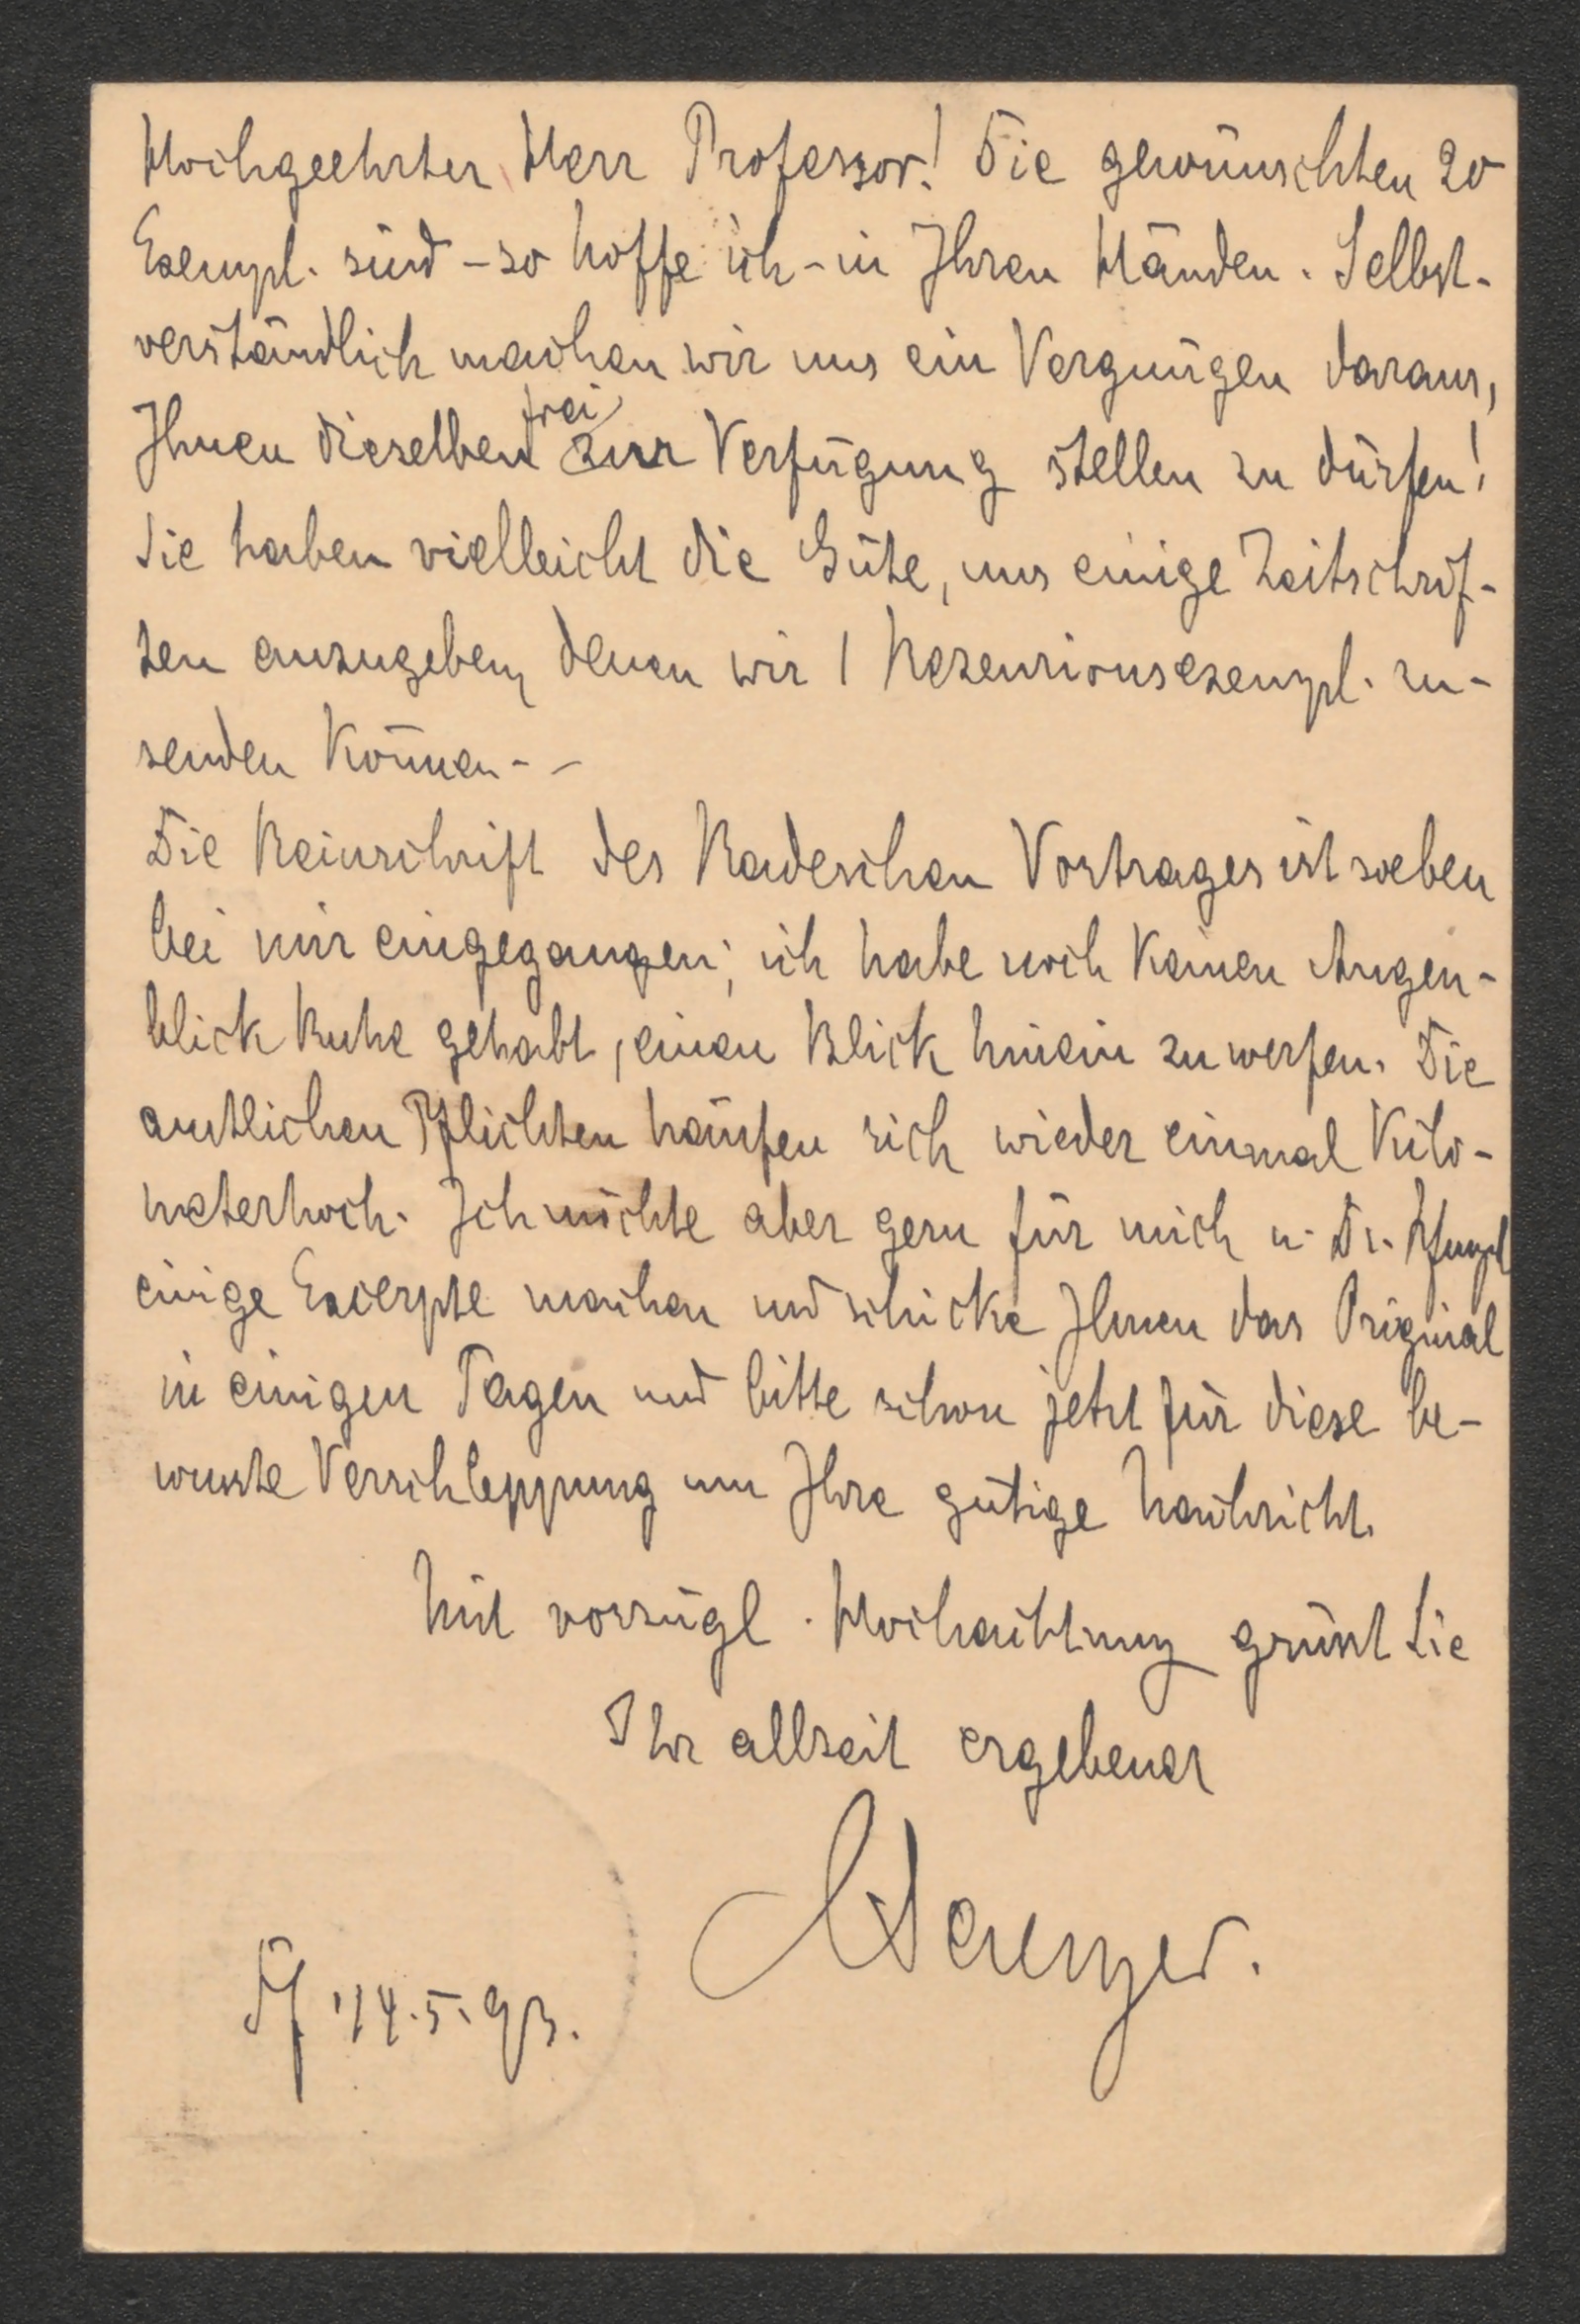 Hochgeehrter Herr Professor! Die gewünschten 20
Exempl. sind – so hoffe ich – in Ihren Händen. Selbst-
verständlich machen wir uns ein Vergnügen daraus,
Ihnen dieselben frei zur Verfügung stellen zu dürfen!
Sie haben vielleicht die Güte, uns einige Zeitschrif-
ten anzugeben, denen wir 1 Rezensionsexempl. zu-
senden können. –
Die Reinschrift des Radeschen Vortrages ist soeben
bei mir eingegangen; ich habe noch keinen Augen-
blick Ruhe gehabt, einen Blick hinein zu werfen. Die
amtlichen Pflichten häufen sich wieder einmal kilo-
meterhoch. Ich möchte aber gern für mich u. Dr.
einige Excerpte machen und schicke Ihnen das Original
in einigen Tagen und bitte schon jetzt für diese be-
wusste Verschleppung um Ihre gütige Nachricht.
Mit vorzügl. Hochachtung grüsst Sie
Ihr allzeit ergebener
14.5.93.